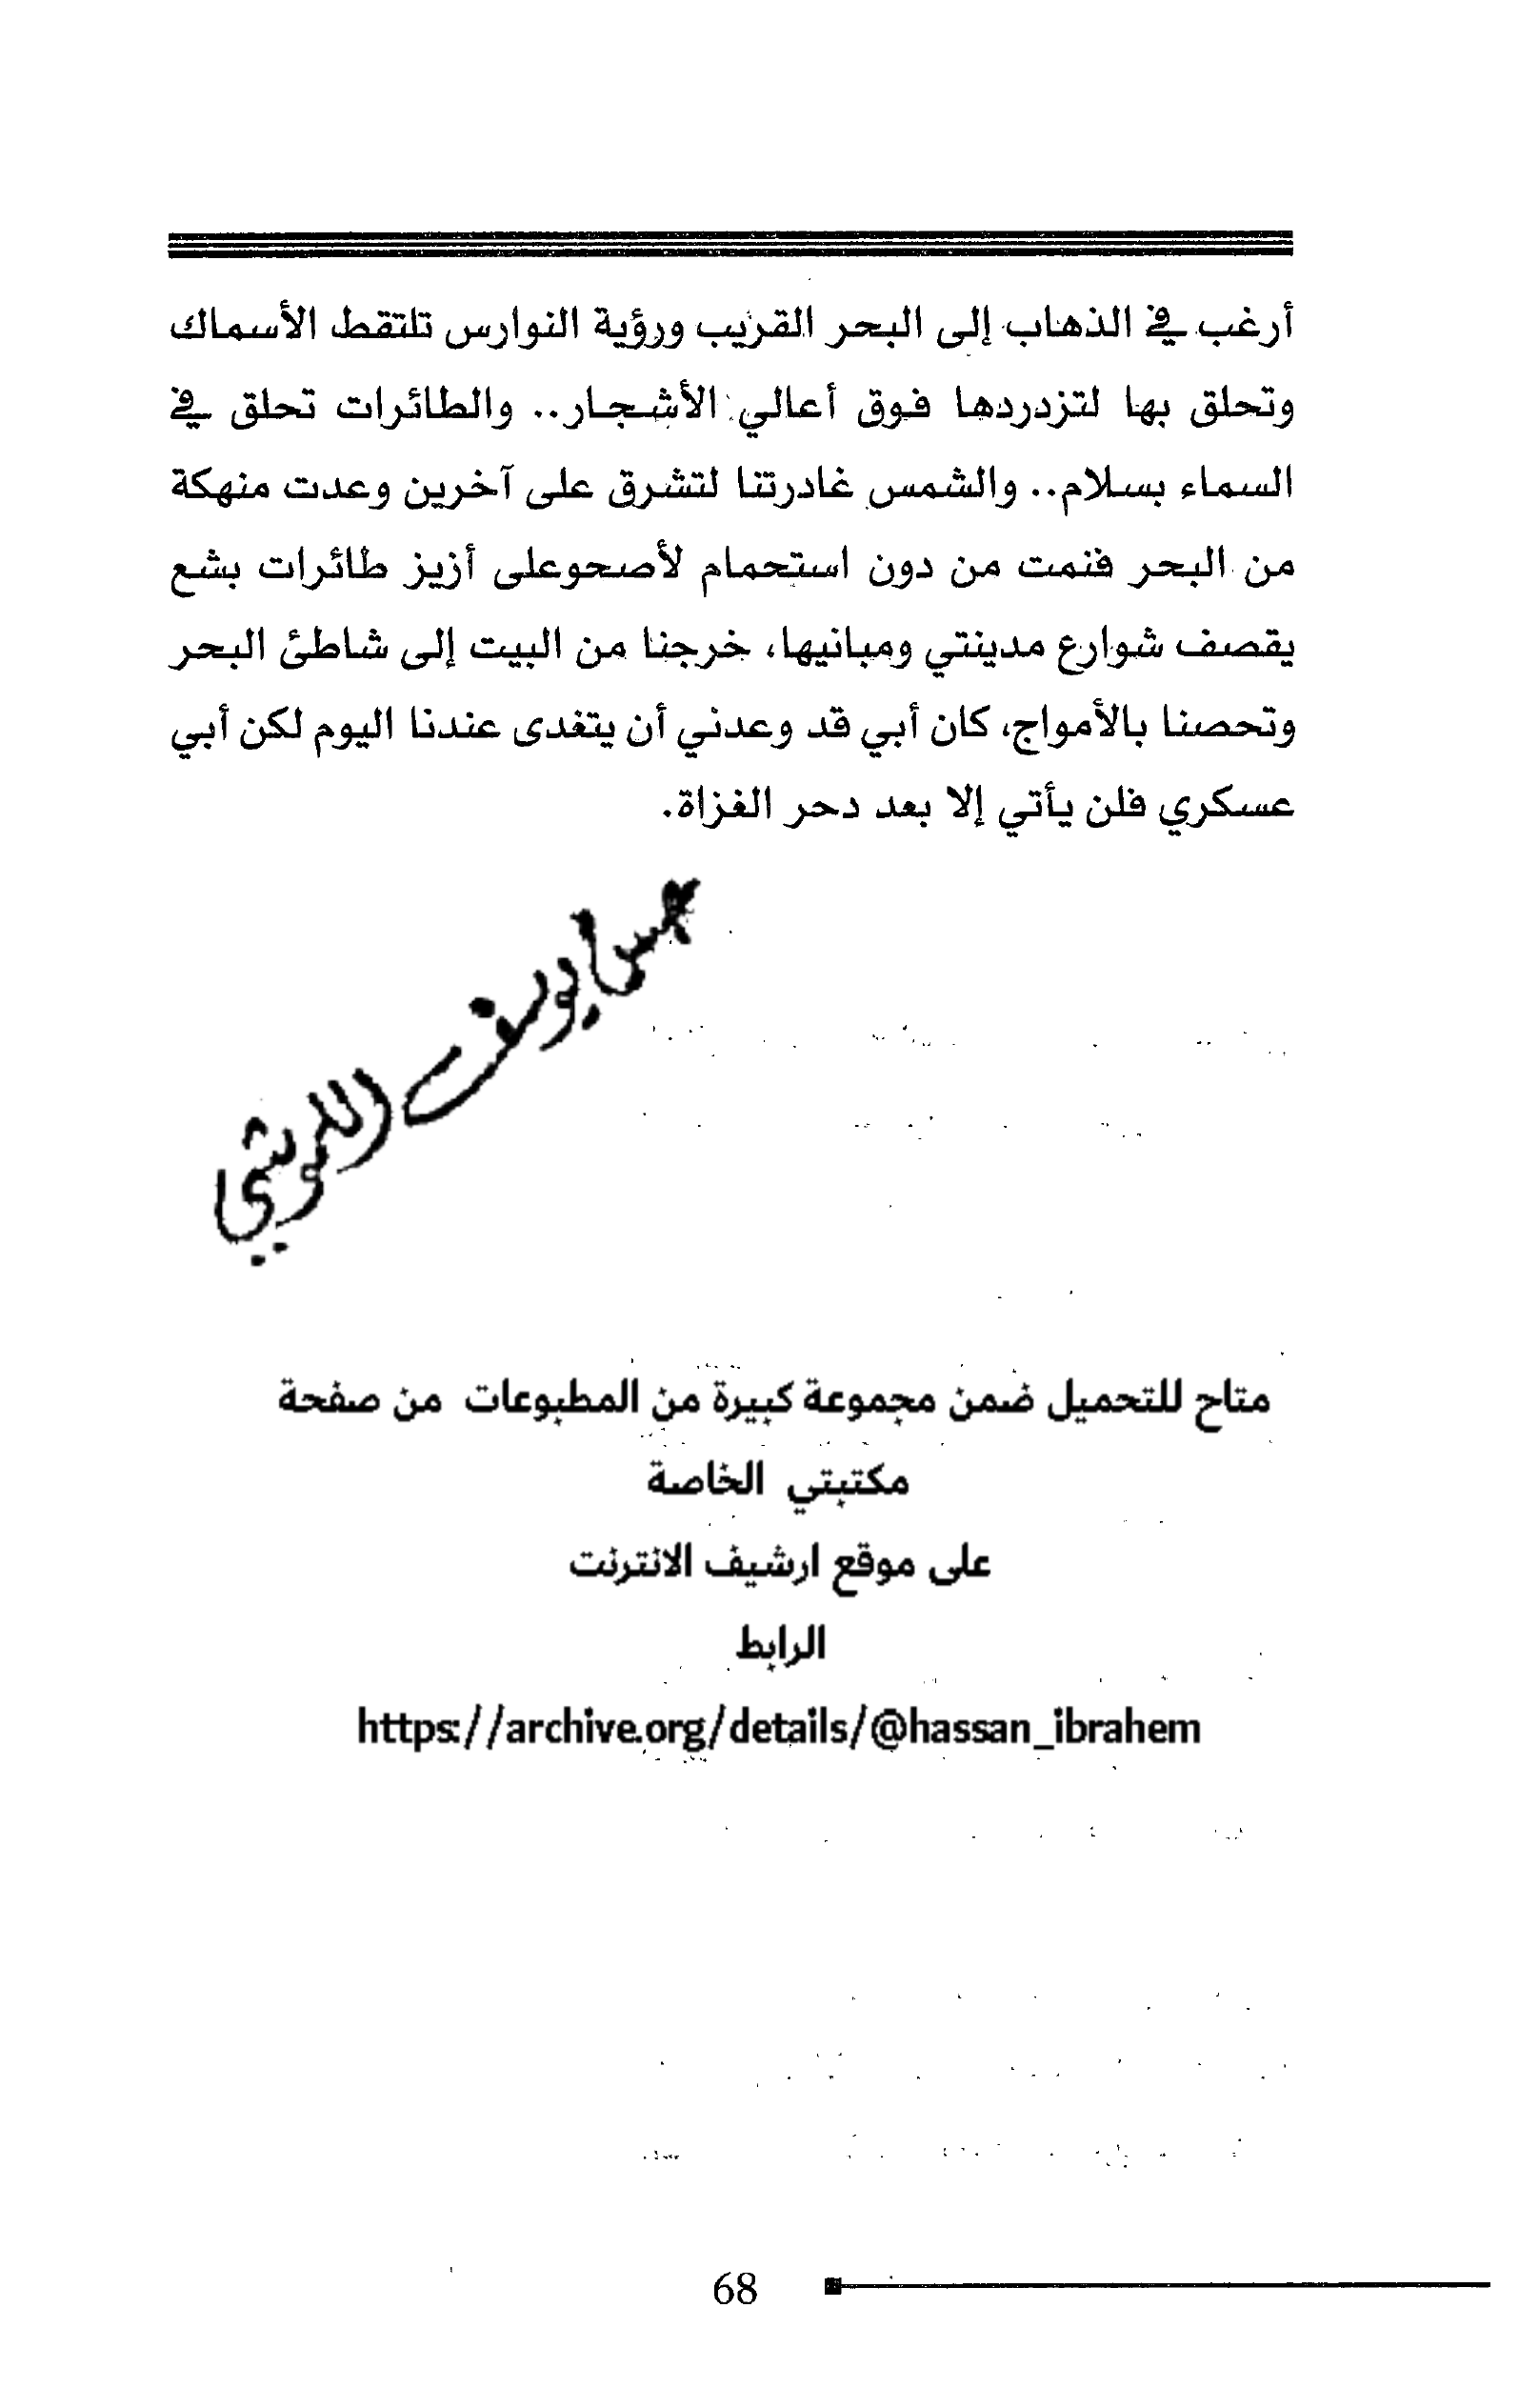 أرغب في الذهاب إلى البحر القريب ورؤية النوارس تلتقط الأسماك
وتحلق بها لتزدردها فوق أعالي الأشجار.. والطائرات تحلق في
السماء بسلام.. والشمس غادرتنا لتشرق على آخرين وعدت منهكة
من البحر فنمت من دون استحمام لأصحوعلى أزيز طائرات بشع
يقصف شوارع مدينتي ومبانيها، خرجنا من البيت إلى شاطئ البحر
وتحصنا بالأمواج، كان أبي قد وعدني أن يتغدى عندنا اليوم لكن أبي
عسكري فلن يأتي إلا بعد دحر الغزاة.
يوسف
متاح للتحميل ضمن مجموعة كبيرة من المطبوعات من صفحة
مكتبتي الخاصة
على موقع ارشيف الانترنت
الرابط
https://archive.org/details/@hassan_ibrahem
68